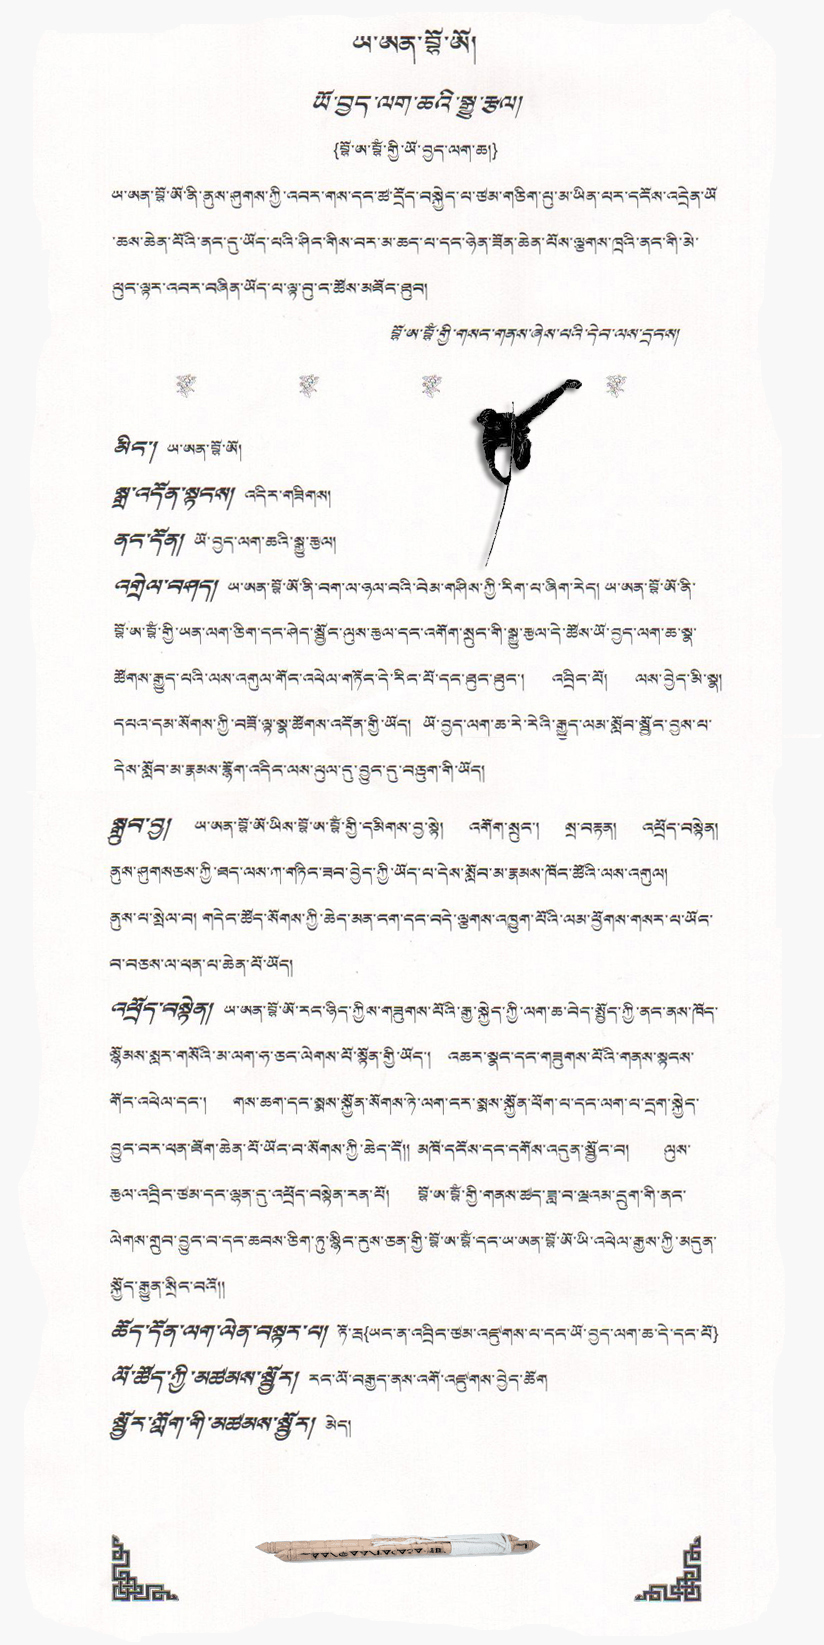 ཡ་ཨན་བྷོ་ཨོ།
ཡོ་བྱད་ལག་ཆའི་སྒྱུ་རྩལ།
{བྷོ་ཨ་བྷྲཾ་གྱི་ཡོ་བྱད་ལག་ཆ།}
ཡ་ཨན་བྷོ་ཨོ་ནི་ནུས་ཤུགས་ཀྱི་འབར་གས་དང་ཚ་དྲོད་བསྐྱེད་པ་ཙམ་གཅིག་པུ་མ་ཡིན་པར་དངོས་འདྲེན་ཡོ
་ཆས་ཆེན་པོའི་ནང་དུ་ཡོད་པའི་ཤིང་གིས་བར་མ་ཆད་པ་དང་ཉེན་ཟོན་ཆེན་པོས་ལྕགས་ཁྲའི་ནང་གི་མེ་
ཕུང་ལྟར་འབར་བཞིན་ཡོད་པ་ལྟ་བུ་ང་ཚོས་མཐོང་ཐུབ།
བྷོ་ཨ་བྷྲཾ་གྱི་གསང་གནས་ཞེས་པའི་དེབ་ལས་དྲངས།
མིང་། ཡ་ཨན་བྷོ་ཨོ།
སྒྲ་འདོན་སྟངས། འདིར་གཟིགས།
ནང་དོན། ཡོ་བྱད་ལག་ཆའི་སྒྱུ་རྩལ།
འགྲེལ་བཤད། ཡ་ཨན་བྷོ་ཨོ་ནི་བག་ལ་ཉལ་བའི་བེམ་གཤིས་ཀྱི་རིག་པ་ཞིག་རེད། ཡ་ཨན་བྷོ་ཨོ་ནི་
བྷོ་ཨ་བྷྲཾ་གྱི་ཡན་ལག་ཅིག་དང་ཤེད་སྦྱོང་ལུས་རྩལ་དང་འགོག་སྲུང་གི་སྒྱུ་རྩལ་དེ་ཚོས་ཡོ་བྱད་ལག་ཆ་སྣ་
ཚོགས་རྒྱུད་པའི་ལས་འགུལ་གོང་འཕེལ་གཏོང་དེ་རིང་པོ་དང་ཐུང་ཐུང་། འབྲིང་པོ། ལས་བྱེད་མི་སྣ།
དཔའ་དམ་སོགས་ཀྱི་བཟོ་ལྟ་སྣ་ཚོགས་འདོན་གྱི་ཡོད། ཡོ་བྱད་ལག་ཆ་རེ་རེའི་རྒྱུད་ལམ་སློབ་སྦྱོང་བྱས་པ་
དེས་སློབ་མ་རྣམས་རྙོག་འདིང་ལས་ཕུལ་དུ་བྱུང་དུ་བཅུག་གི་ཡོད།
སྒྲུབ་བྱ། ཡ་ཨན་བྷོ་ཨོ་ཡིས་བྷོ་ཨ་བྷྲཾ་གྱི་དམིགས་བྱ་སྟེ། འགོག་སྲུང་། སྲ་བརྟན། འཕྲོད་བསྟེན།
ནུས་ཤུགསཅས་ཀྱི་ཐད་ལས་ཀ་གཏིང་ཟབ་བྱེད་ཀྱི་ཡོད་པ་དེས་སློབ་མ་རྣམས་ཁོང་ཚོའི་ལས་འགུལ།
ནུས་པ་སྤེལ་བ། གདེང་ཚོད་སོགས་ཀྱི་ཆེད་མན་ངག་དང་བདེ་ལྕགས་འཁྱུག་པོའི་ལམ་ཕྱོགས་གསར་པ་ཡོང་
བ་བཅས་ལ་ཕན་པ་ཆེན་པོ་ཡོད།
འཕྲོད་བསྟེན། ཡ་ཨན་བྷོ་ཨོ་རང་ཉིད་ཀྱིས་གཟུགས་པོའི་རྒྱ་སྐྱེད་ཀྱི་ལག་ཆ་བེད་སྤྱོད་ཀྱི་ནང་ནས་ཁོང་
སྙོམས་སླར་གསོའི་མ་ལག་ཧ་ཅང་ལེགས་པོ་སྟོན་གྱི་ཡོད། འཆར་སྣང་དང་གཟུགས་པོའི་གནས་སྟངས་
གོང་འཕེལ་དང་། གས་ཆག་དང་རྨས་སྐྱོན་སོགས་ཏེ་ལག་ངར་རྨས་སྐྱོན་ཕོག་པ་དང་ལག་པ་དྲག་སྐྱེད་
བྱུང་བར་ཕན་ཐོག་ཆེན་པོ་ཡོང་བ་སོགས་ཀྱི་ཆེད་དོ།། མཁོ་དངོས་དང་དགོས་འདུན་སྦྱོང་བ། ལུས་
རྩལ་འབྲིང་ཙམ་དང་ལྷན་དུ་འཕྲོད་བསྟེན་རན་པོ། བྷོ་ཨ་བྷྲཾ་གྱི་གནས་ཚད་ཟླ་བ་ལྔའམ་དྲུག་གི་ནང་
ལེགས་གྲུབ་བྱུང་བ་དང་ཆབས་ཅིག་ཏུ་སྙིང་རུས་ཅན་གྱི་བྷོ་ཨ་བྷྲཾ་དང་ཡ་ཨན་བྷོ་ཨོ་ཡི་འཕེལ་རྒྱས་ཀྱི་མདུན་
སྐྱོད་རྒྱུན་སྲིང་བའོ།།
ཚོད་དོན་ལག་ལེན་བསྟར་པ། {ཡང་ན་འབྲིང་ཙམ་འཛུགས་པ་དང་ཡོ་བྱད་ལག་ཆ་དེ་དང་པོ}
ལོ་ཚོད་ཀྱི་མཚམས་སྦྱོར། རང་ལོ་བརྒྱད་ནས་འགོ་འཛུགས་བྱེད་ཆོག
སྦྱོར་ཀློག་གི་མཚམས་སྦྱོར། མེད།